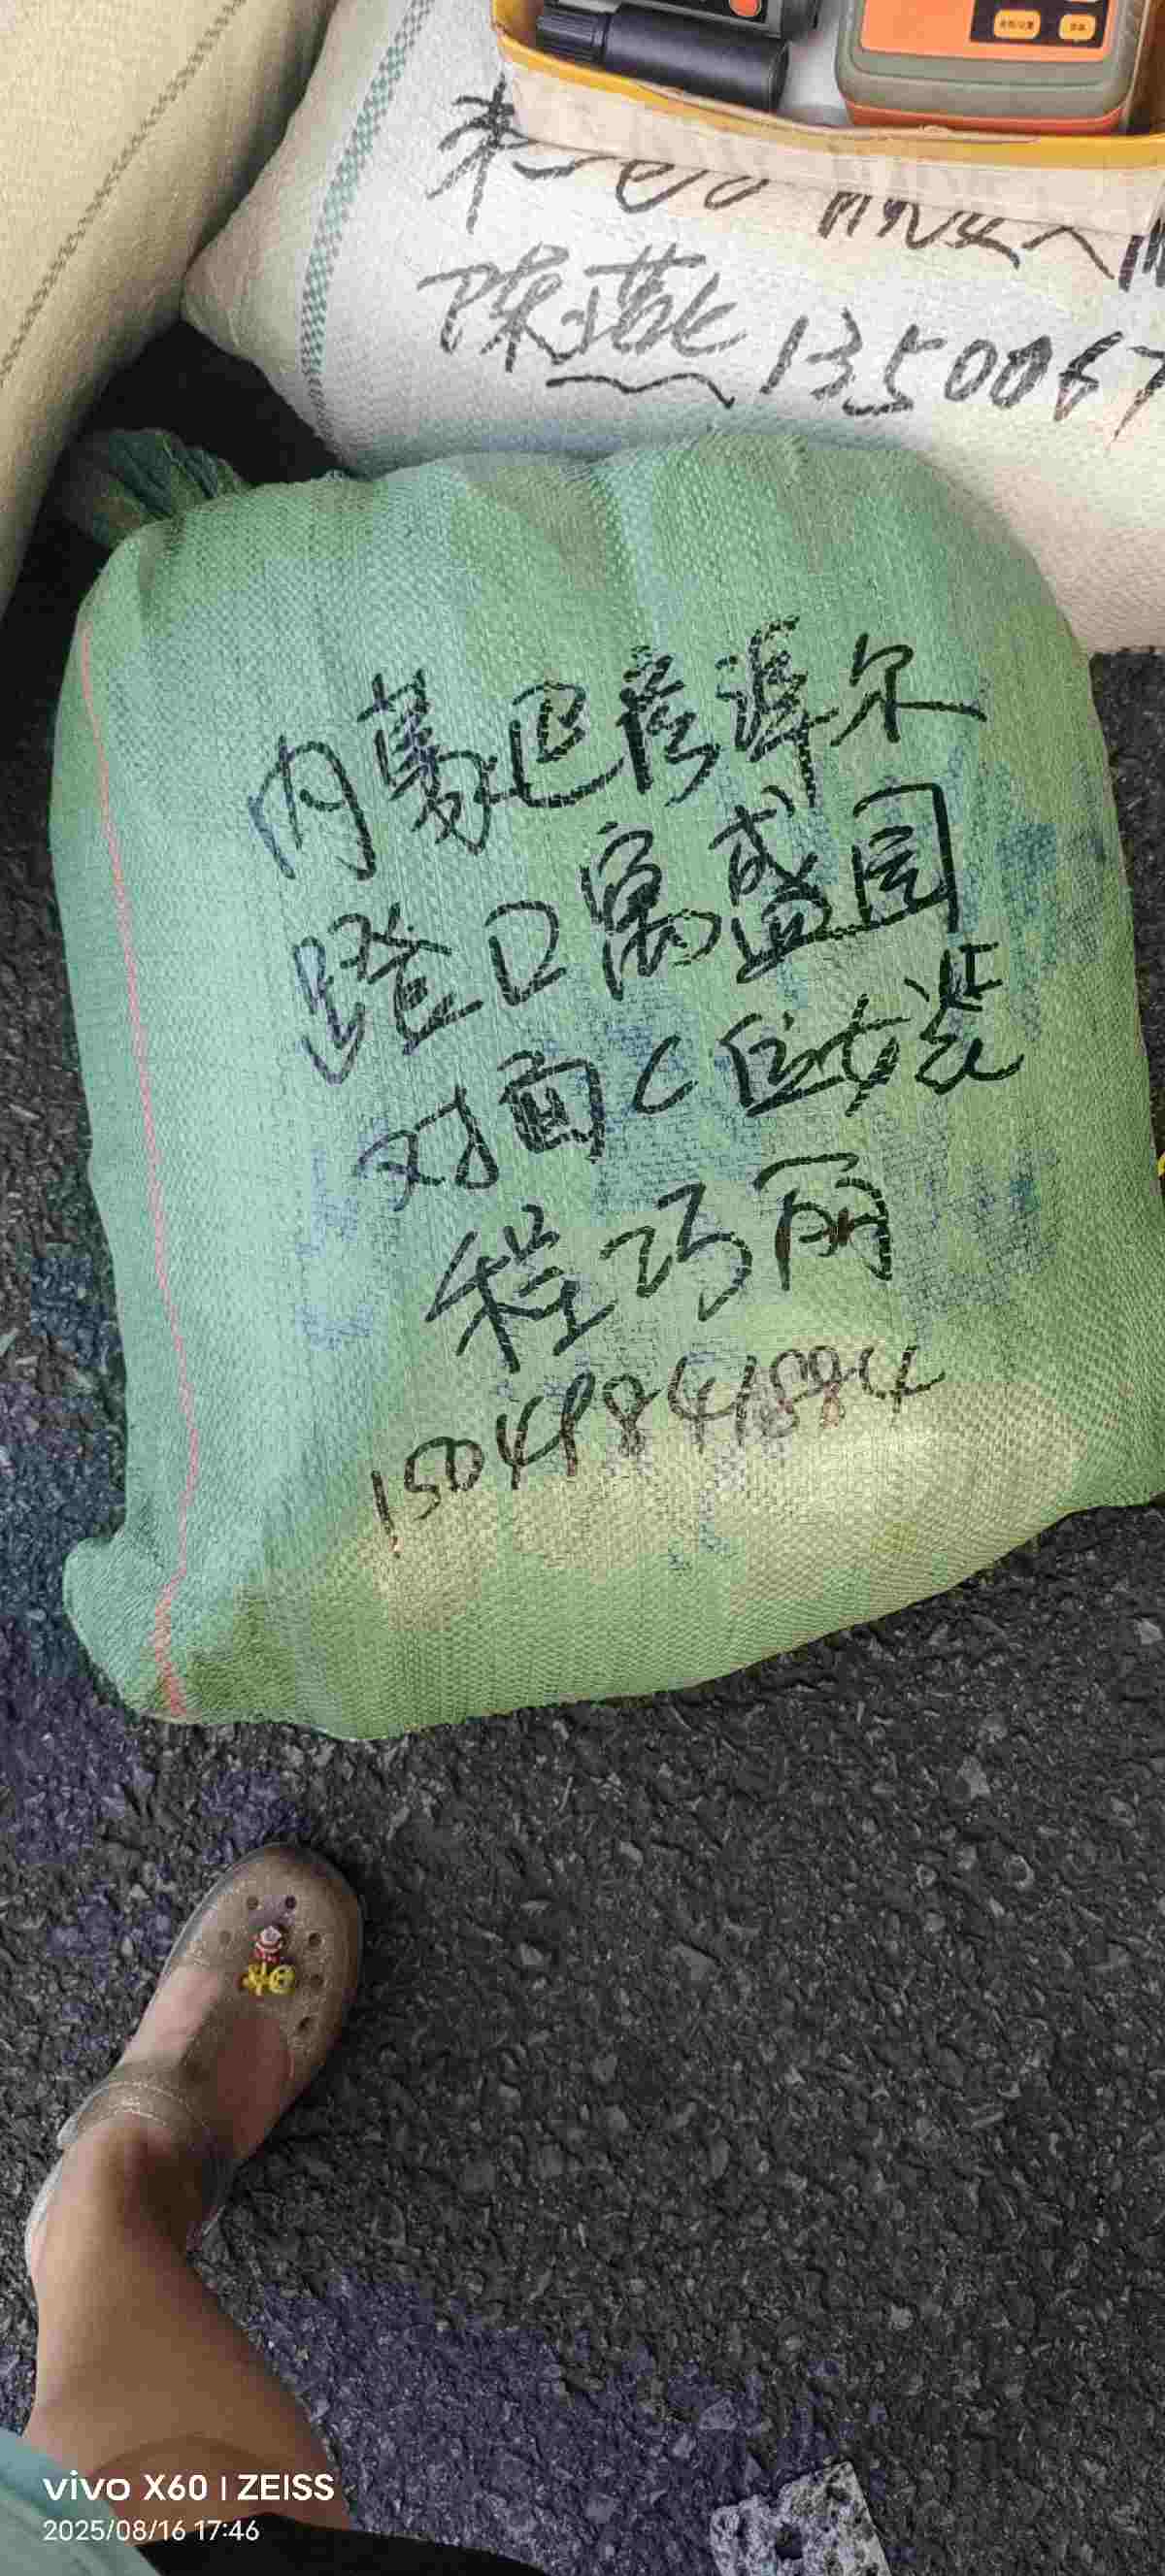 陈燕 1350067
内蒙巴彦淖尔
蹬口富盛园
对面C位女装
程巧丽
15049841884
vivo X60 | ZEISS
2025/08/16 17:46